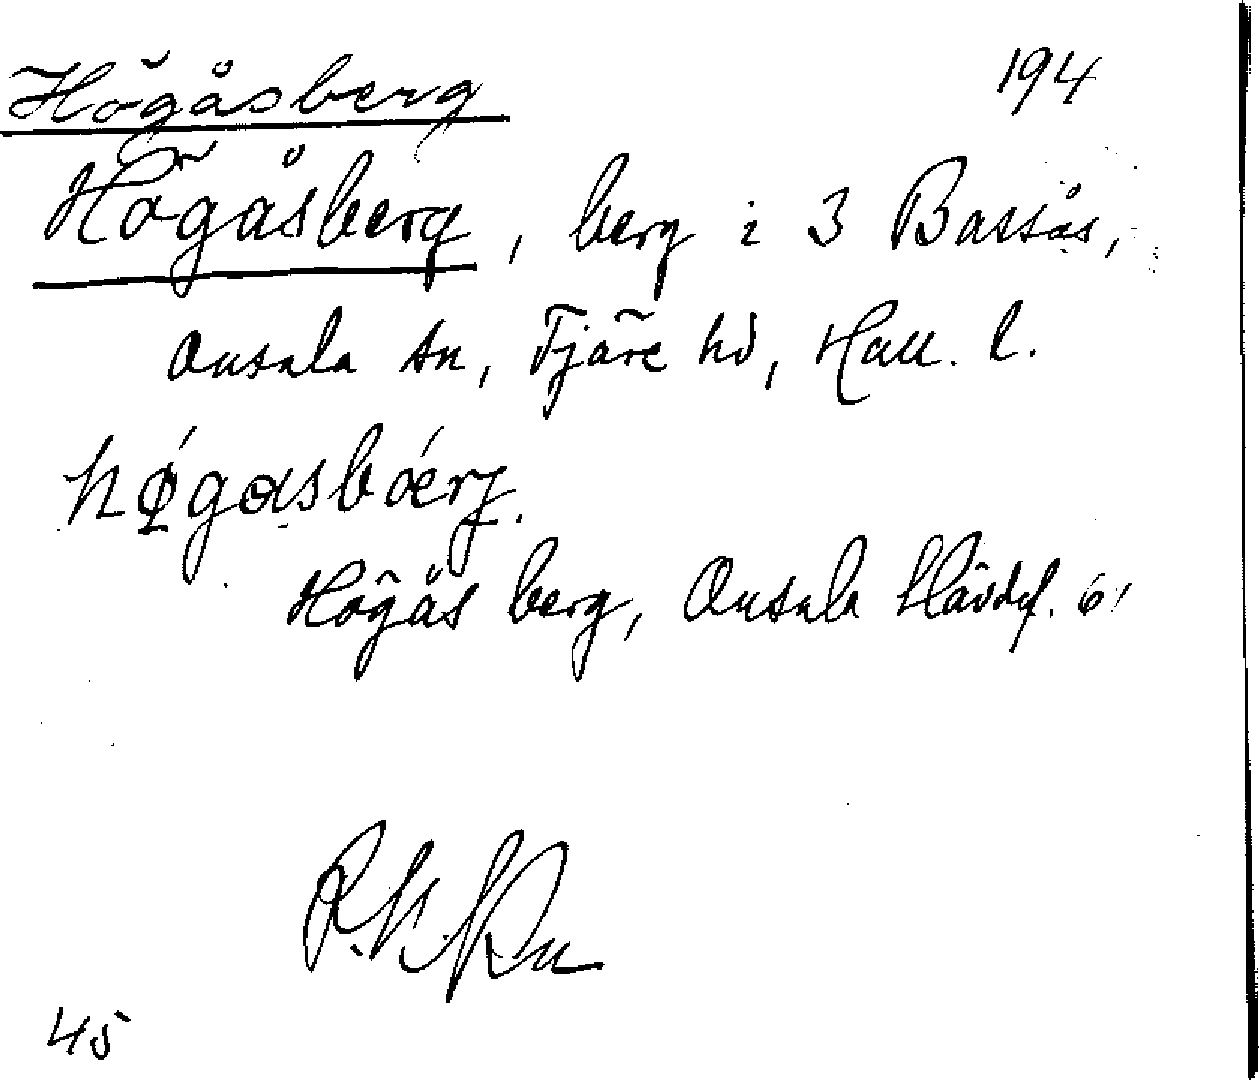 Högåsberg 194
Högåsberg, berg i 3 Bassås,
Onsala sn, Fjäre hd, Hall. l.
Högås berg, Onsala Hävdef. 61
45